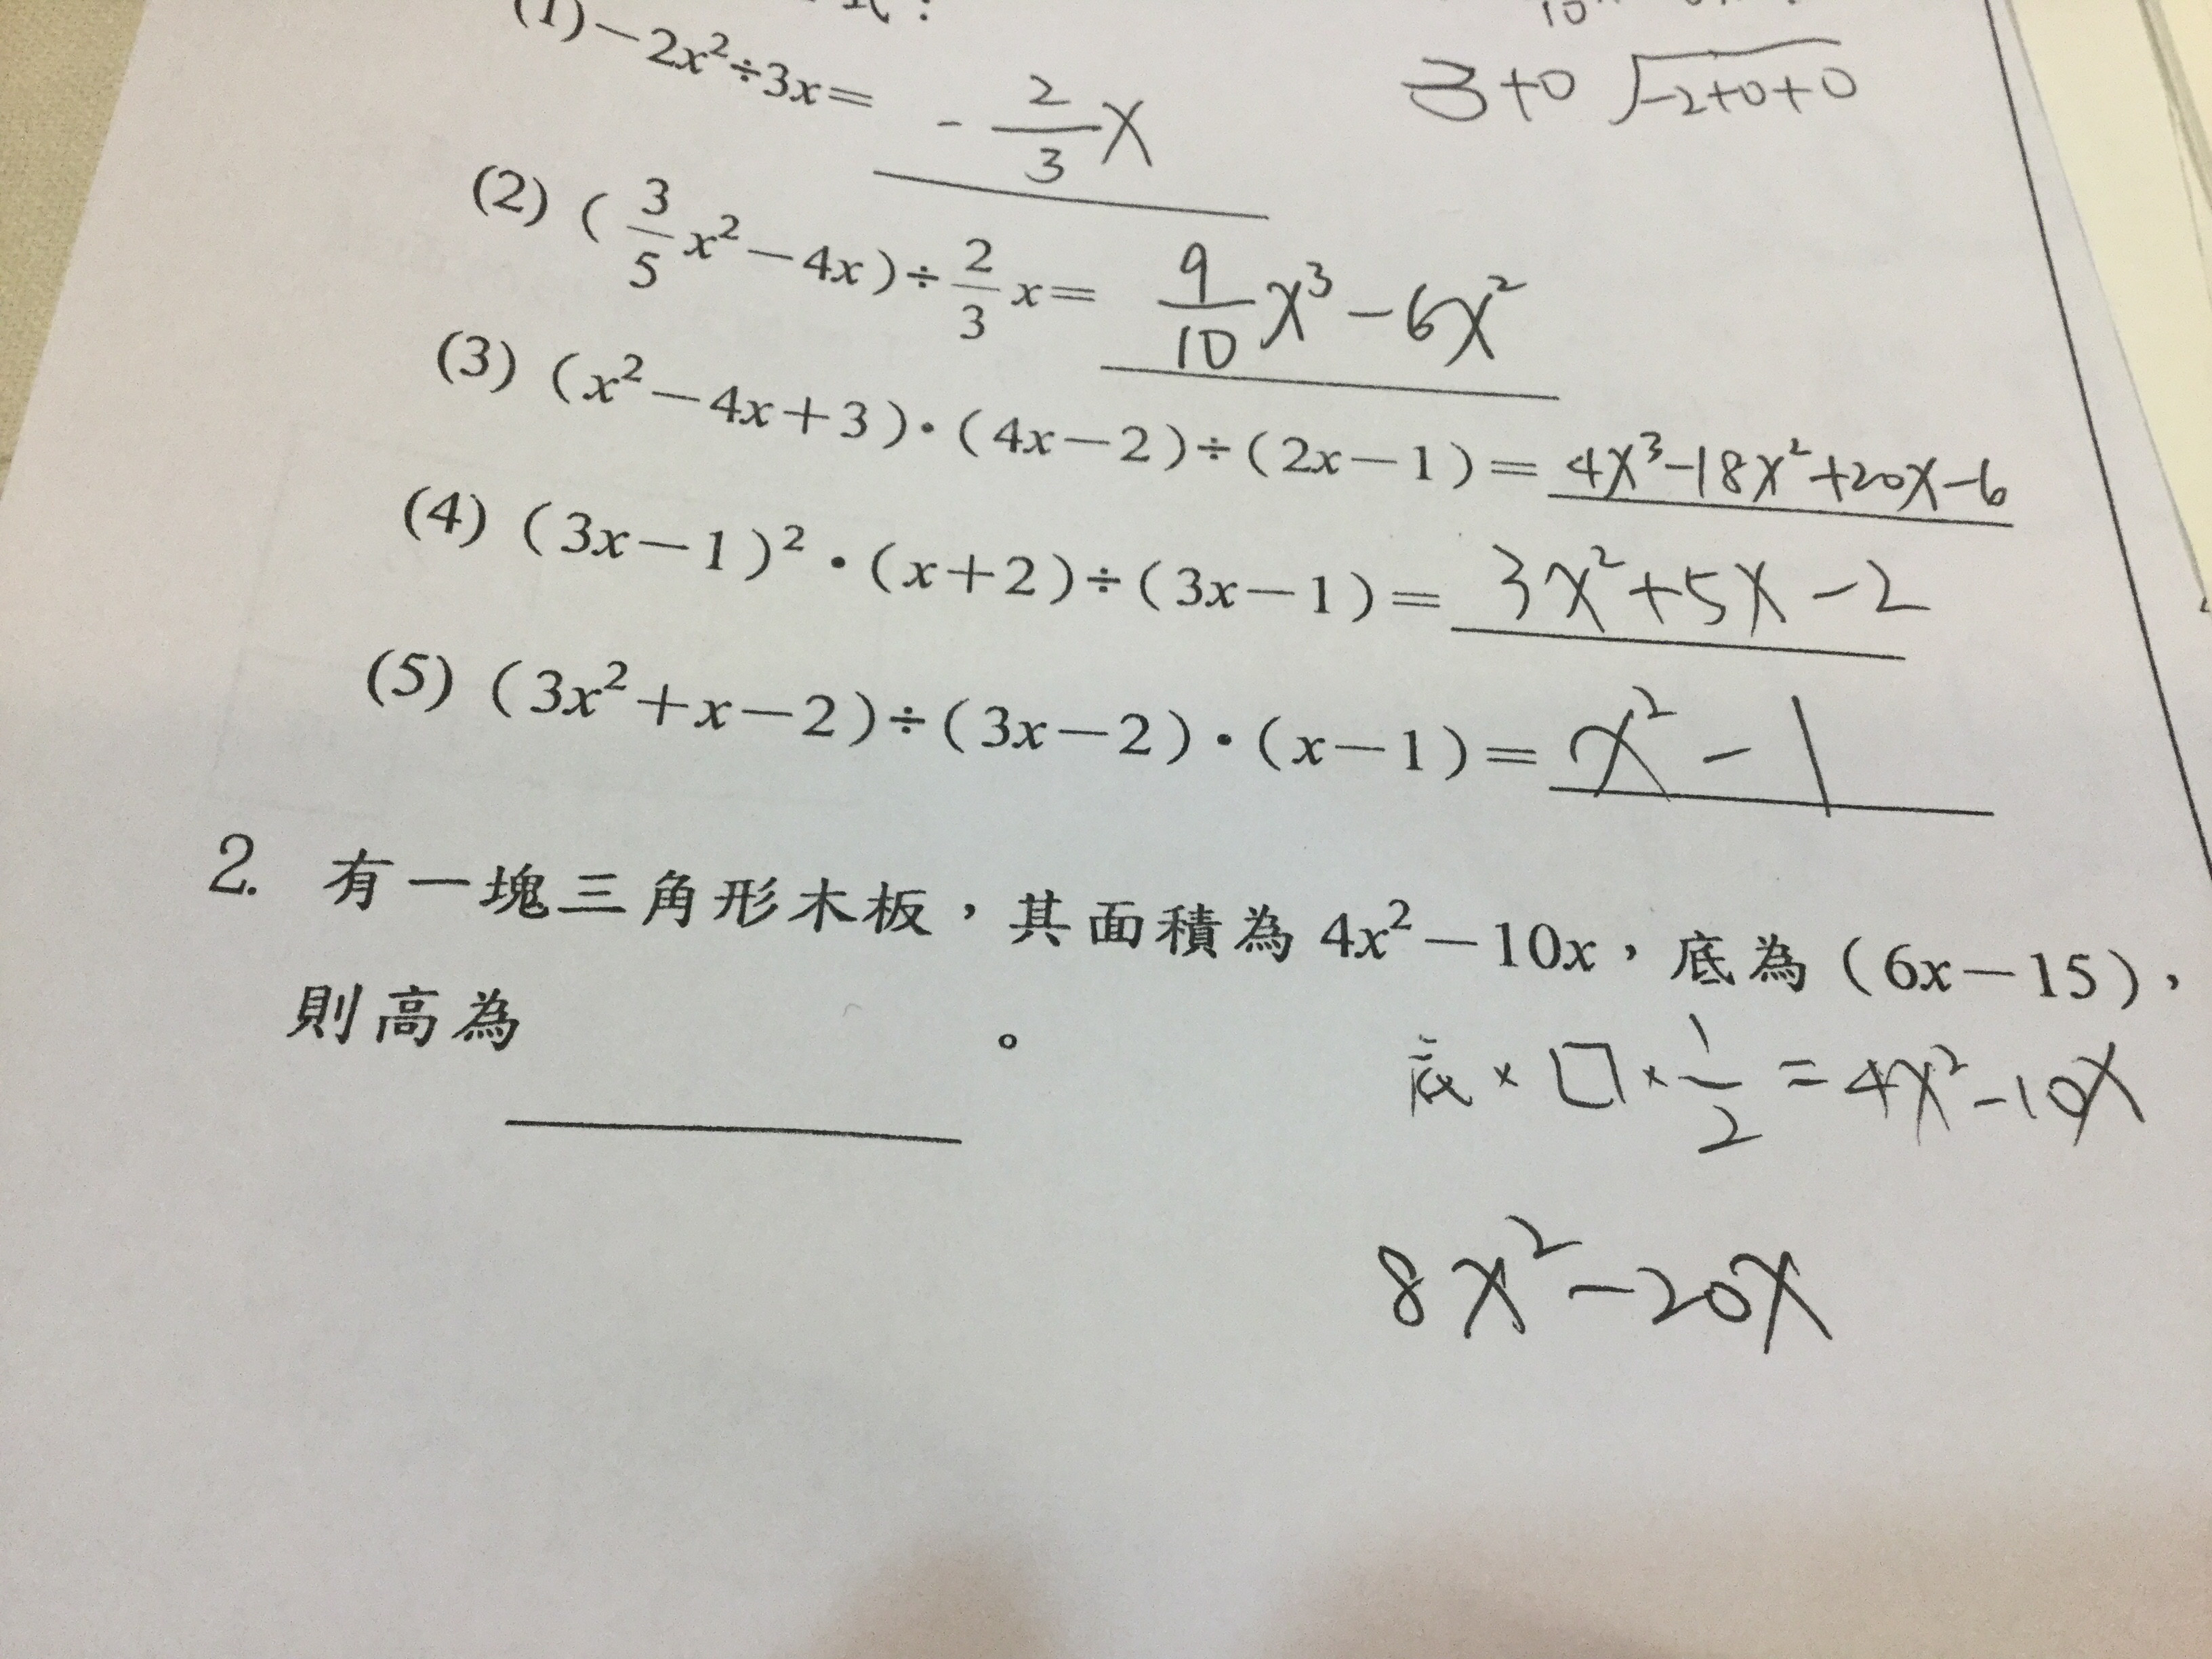 (1) −2x²÷3x= -2/3 x
3+0 √-2+0+0
(2) (3/5 x²−4x)÷2/3 x= 9/10 x³-6x²
(3) (x²−4x+3)·(4x−2)÷(2x−1)= 4x³-18x²+20x-6
(4) (3x−1)²·(x+2)÷(3x−1)= 3x²+5x-2
(5) (3x²+x−2)÷(3x−2)·(x−1)= x²-1
2. 有一塊三角形木板，其面積為4x²−10x，底為(6x−15)，
則高為＿＿＿＿。
底×□×1/2=4x²-10x
8x²-20x